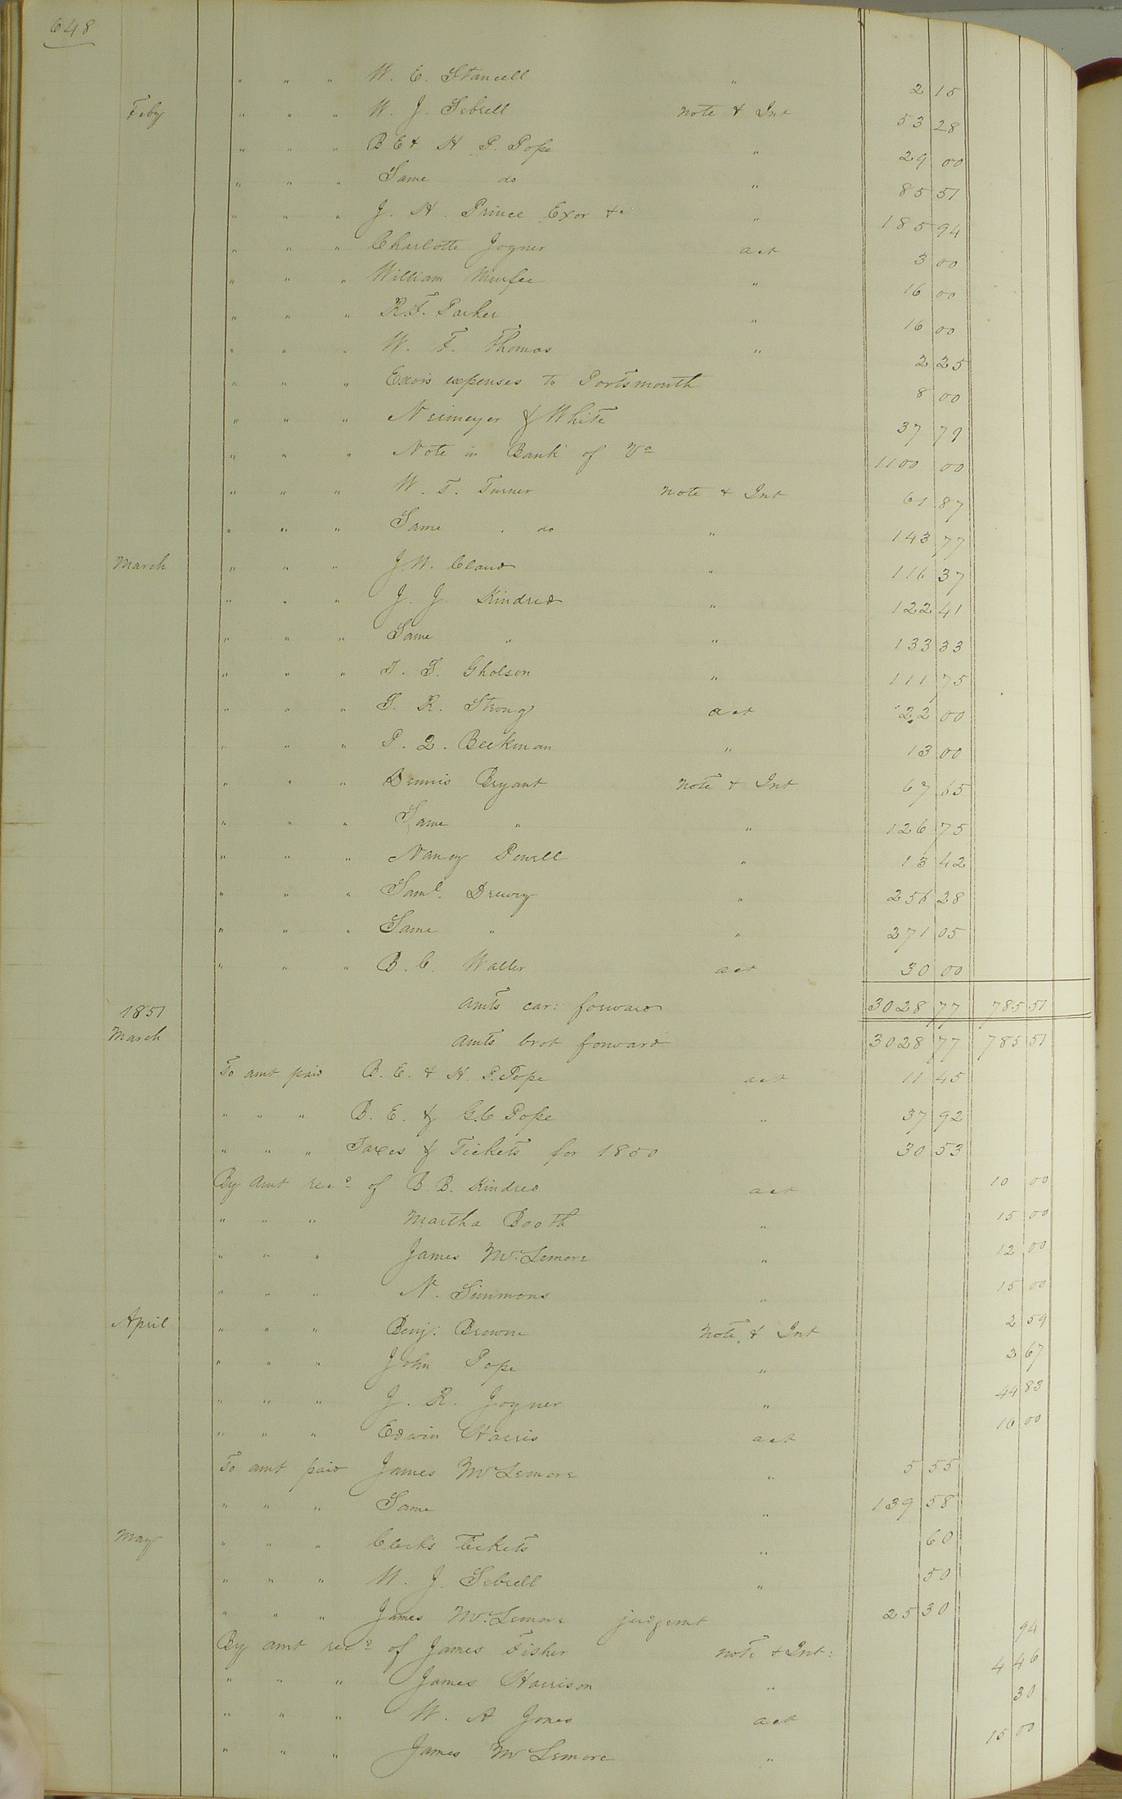 648
" " " W. E. Stancell " 2 15
Feby " " " W. J. Sebrell note & Int 53 28
" " " B E & H P. Pope " 29 00
" " " Same do " 85 51
" " " J. H. Prince Exor &c " 185 94
" " " Charlotte Joyner act 3 00
" " " William " 16 00
" " " R. F. Parker " 16 00
" " " W. F. Thomas " 2 25
" " " Exors expenses to Portsmouth 8 00
" " " Niemeyer & White 37 79
" " " Note in Bank of Va 1100 00
" " " W. T. Turner note & Int 61 87
" " " Same . do " 143 77
March " " " J W. Claud " 116 37
" " " J. J Kindred " 122 41
" " " Same " " 133 33
" " " T. S. Gholson " 111 75
" " " T. R. Strong act 22 00
" " " P. Q. Beekman " 13 00
" " " Dennis Bryant note & Int 67 65
" " " Same " " 126 75
" " " Nancy Powell " 13 42
" " " Saml. Drewry " 256 28
" " " Same " " 271 05
" " " B. C. Waller act 30 00
1851 amts car: forward 3028 77 785 51
March amts brot forward 3028 77 785 51
To amt paid B. E. & H. P. Pope act 11 45
" " " B. E. & G. C Pope " 37 92
" " " Taxes & Tickets for 1850 30 53
By amt recd of B B. Kindred act 10 00
" " " Martha Booth " 15 00
" " " James McLemore " 12 00
" " " N. Simmons " 15 00
April " " " Benj. Browne note & Int 2 59
" " " John Pope " 2 67
" " " J. R. Joyner " 44 83
" " " Edwin Harris act 16 00
To amt paid James McLemore " 5 55
" " " Same " 139 58
May " " " Clerks Tickets " 60
" " " W. J. Sebrell " 50
" " " James McLemore judgemt 25 30
By amt recd of James Fisher note & Int: 94
" " " James Harrison " 4 46
" " " W. A Jones act 30
" " " James McLemore " 15 00